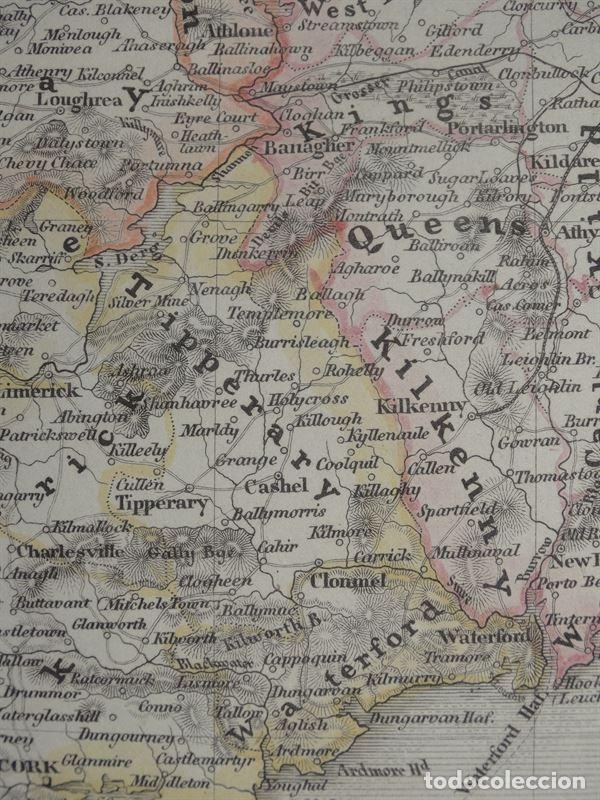 Cas. Blakeney
Streamstown
West
Cloncurry
Menlough
Athlone
Gilford
Monivea
Anaseragh
Ballinahown
Kilbeggan
Edenderry
Athenry
Kilconnel
Ballinasloe
Canal
Clonbullock
Aghrim
Moystown
Crosser
Philipstown
Loughrea
a
y
Irishkelly
Cloghan
Kings
Eyre Court
Frankford
Portarlington
Heath-
lawn
Banagher
Mountmellick
Dalystown
Kildare
Chevy Chace
Portumna
Shannon
Birr
Coppard
Sugar Loaves
Woodford
Ballingarry
Leap
Maryborough
Kilrory
Montrath
Graney
Grove
Queens
Athy
Dunkerrin
Balliroan
Rahin
S. Derg
Agharoe
Ballynakill
Aeros
Teredagh
Silver Mine
Nenagh
Ballagh
Cas. Comer
Templemore
Durrow
Belmont
Burrisleagh
Freshford
Leighlin Br.
Ashroa
Thurles
Rohelly
Old Leighlin
Limerick
Tipperary
Kilkenny
Abington
Shanhavree
Holycross
Kilkenny
Patrickswell
Killough
Gowran
Marldy
Kyllenaule
Killeely
Grange
Coolquil
Callen
Thomastown
Cullen
Cashel
Killaghy
Tipperary
Ballymorris
Spartfield
Kilmallock
Kilmore
Old Ros
Charlesville
Gally Bge.
Cahir
Carrick
Mullinaval
Anagh
Clogheen
Clonmel
Suir
Barrow
Buttavant
Mitchels Town
Ballymac
Glanworth
Kilworth B.
Waterford
Kilworth
Waterford
Blackwater
Cappoquin
Tramore
Ratcormuck
Lismore
Kilmurry
Hook
Drummor
Dungarvan
Conno
Tallow
Waterglasshill
Aglish
Dungarvan Haf.
Dungourney
Waterford Haf.
Glanmire
Castlemartyr
Ardmore
CORK
Ardmore Hd
Middleton
Youghal
todocoleccion
todocoleccion.net